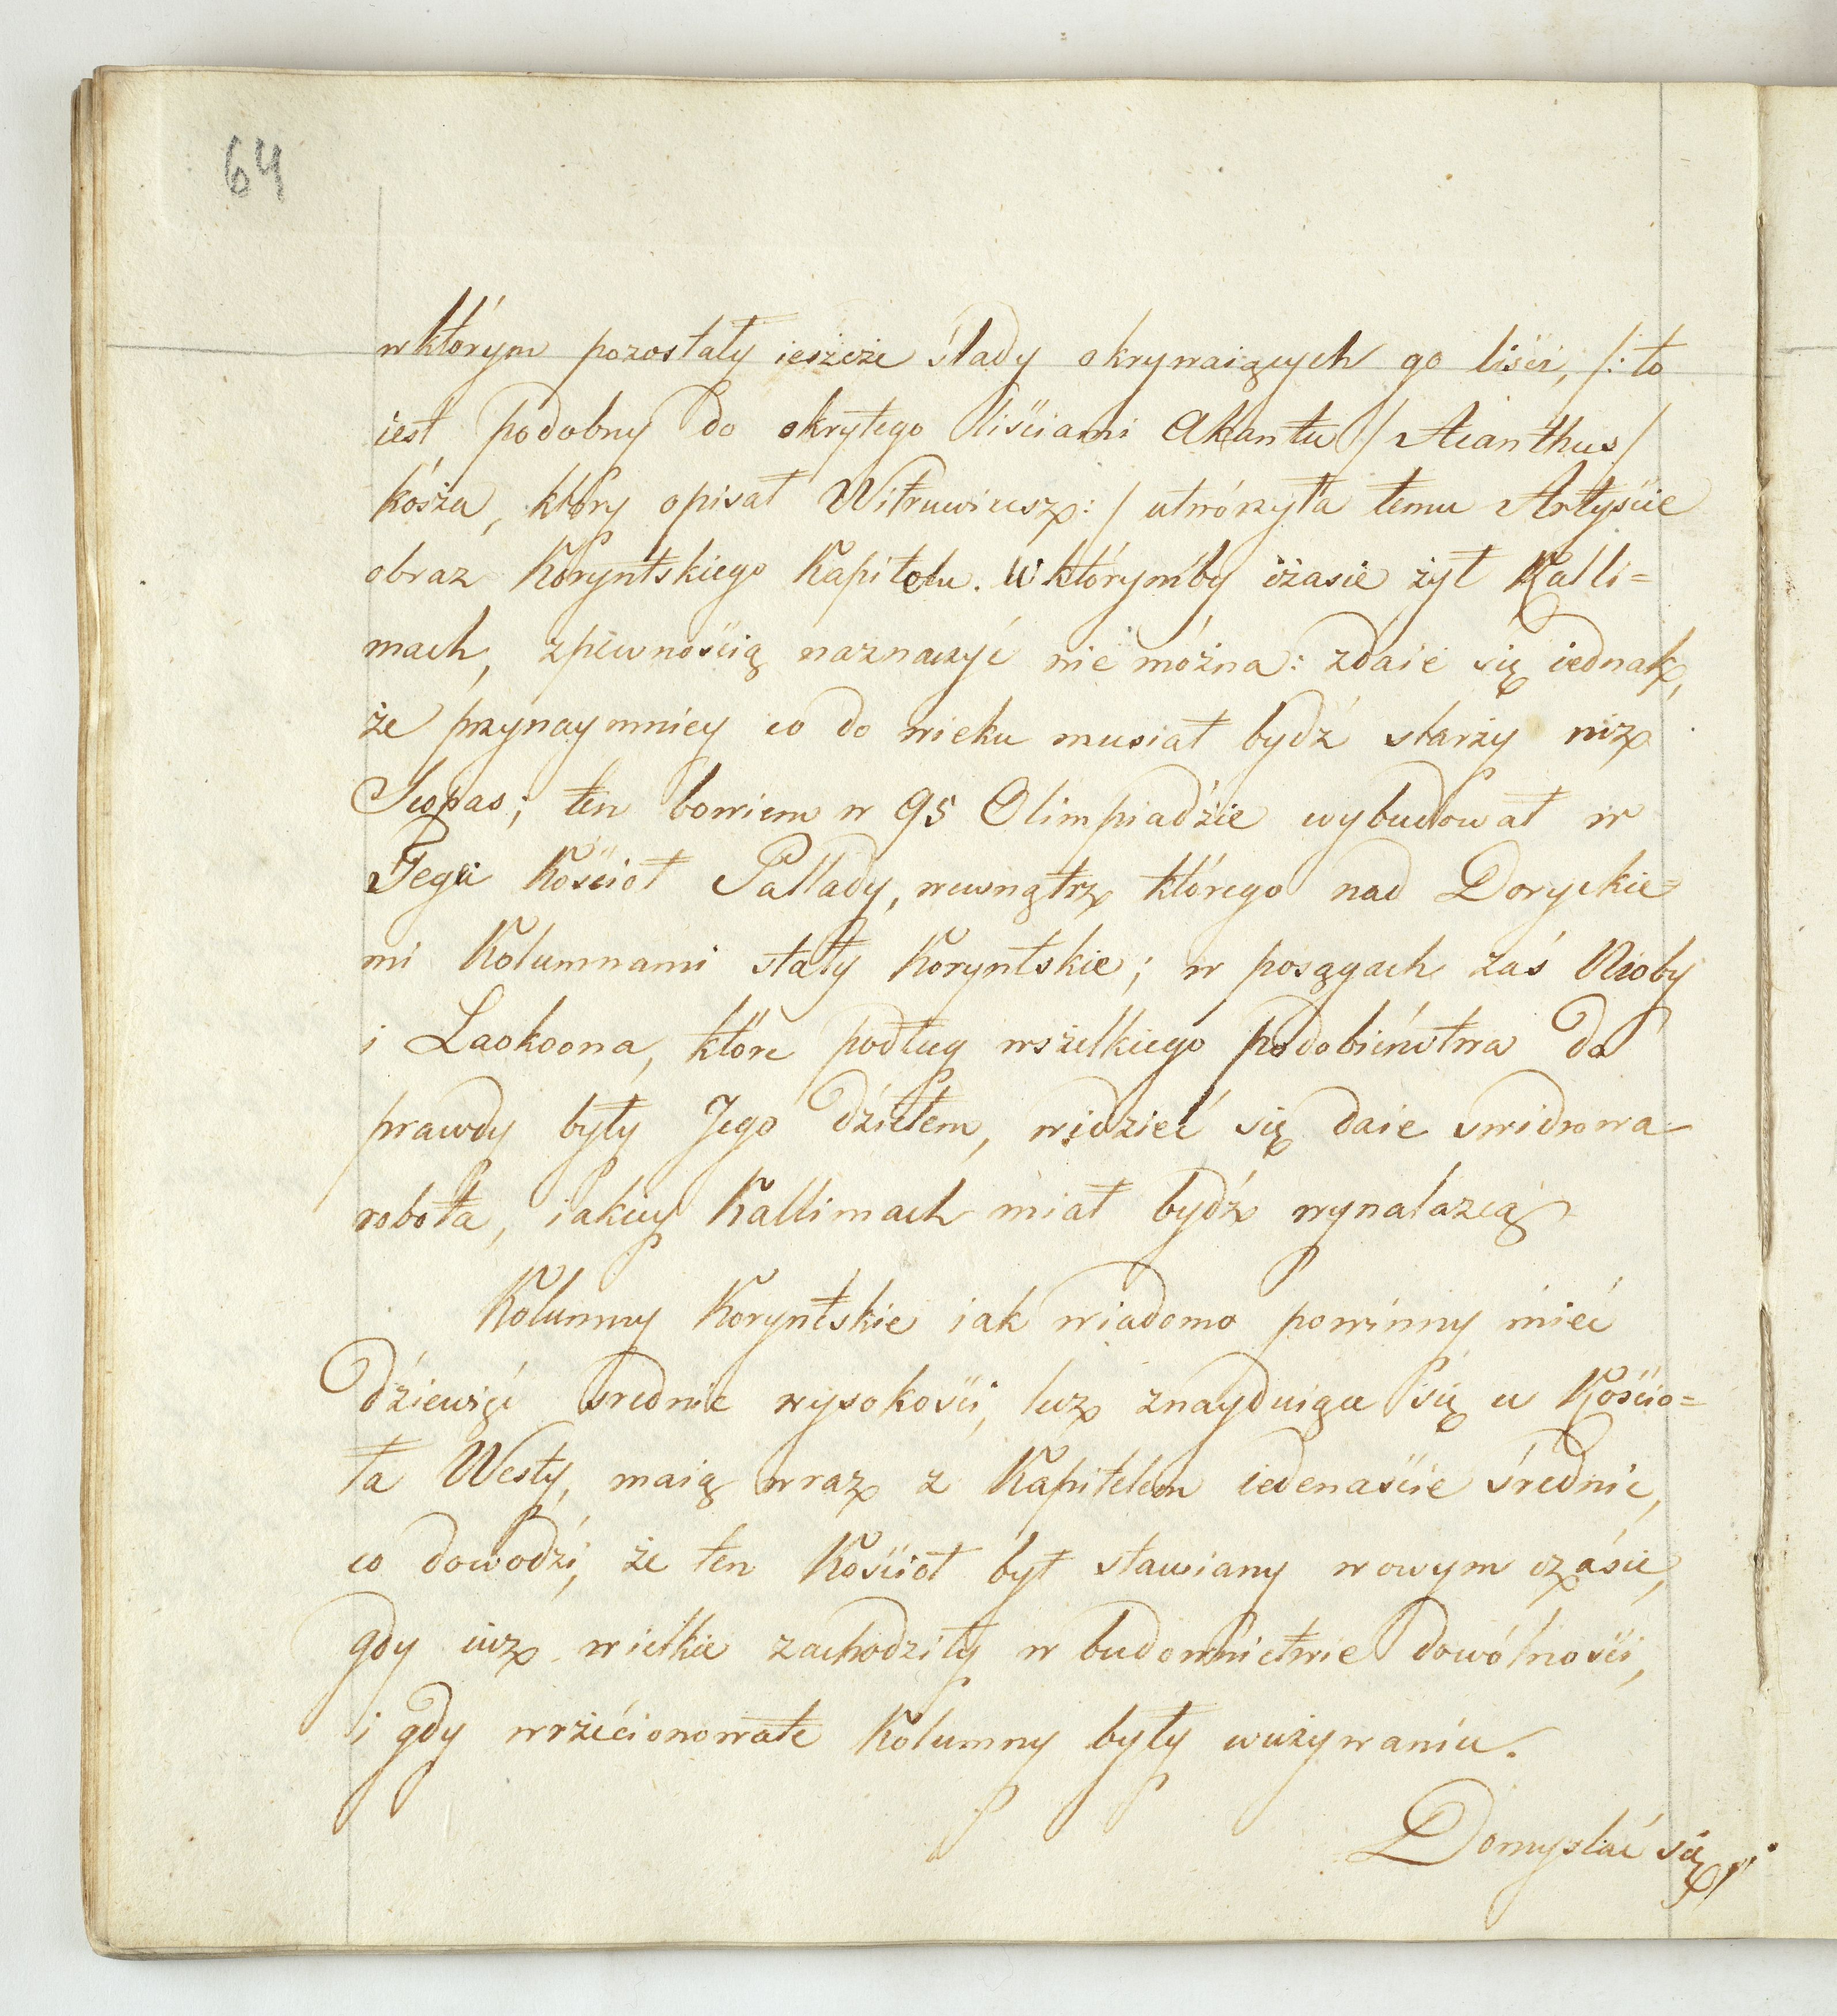 64
w którym pozostały ieszcze ślady okrywaiących go liści, /: to
iest podobny do okrytego liściami Akantu / Acanthus /
kósza, który opisał Witruwiusz: / utwórzyła temu Artyście
obraz Koryntskiego Kapitelu. W którymby czasie żył Kalli=
mach, z pewnością naznaczyć nie można: zdaie się iednak,
że przynaymniey co do wieku musiał bydź starzy niż
Scopas; ten bowiem w 95 Olimpiadzie wybudował w
Tegei Kościoł Pallady, wewnątrz którego nad Doryckie=
mi Kolumnami stały Koryntskie; w posągach zaś Nioby
i Laokoona, które podług wszelkiego podobieństwa do
prawdy były Jego dziełem, widzieć się daie swidrowa
robota, iakiey Kallimach miał bydź wynalazcą.
Kolumny Koryntskie iak wiadomo powinny mieć
dziewięć srednic wysokości, lecz znayduiące się u Kościo=
ła Westy, maią wraz z Kapitelem iedenaście średnic,
co dowodzi, że ten Kościoł był stawiany w owym czasie,
gdy iuż wielkie zachodziły w budownictwie dowólności,
i gdy wrzecionowate Kolumny były w używaniu.
Domyslać się